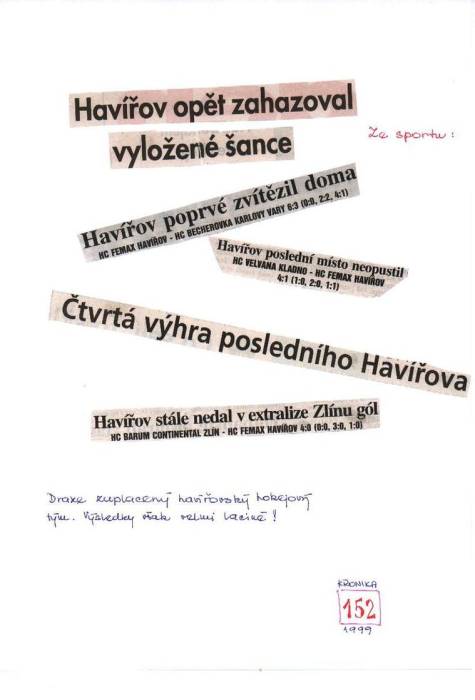 Havířov opět zahazoval
vyložené šance
Ze sportu:
Havířov poprvé zvítězil doma
HC FEMAX HAVÍŘOV - HC BECHEROVKA KARLOVY VARY 6:3 (0:0, 2:2, 4:1)
Havířov poslední místo neopustil
HC VELVANA KLADNO - HC FEMAX HAVÍŘOV
4:1 (1:0, 2:0, 1:1)
Čtvrtá výhra posledního Havířova
Havířov stále nedal v extralize Zlínu gól
HC BARUM CONTINENTAL ZLÍN - HC FEMAX HAVÍŘOV 4:0 (0:0, 3:0, 1:0)
Draze zaplacený havířovský hokejový
tým. Výsledky však velmi laciné!
KRONIKA
152
1999